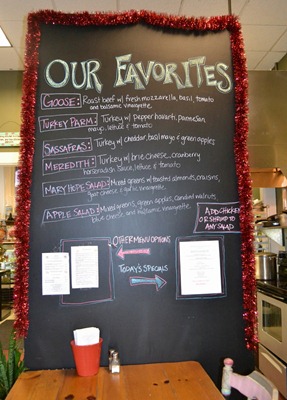 OUR FAVORITES
GOOSE: Roast beef w/ fresh mozzarella, basil, tomato
and balsamic vinaigrette
TURKEY FARM: Turkey w/ Pepper havarti, parmesan
mayo, lettuce & tomato
SASSAFRAS: Turkey w/ cheddar, basil mayo & green apples
MEREDITH: Turkey w/ brie cheese, cranberry
horseradish sauce, lettuce & tomato
MARY HOPE SALAD: Mixed greens w/ toasted almonds, craisins,
goat cheese & garlic vinaigrette
APPLE SALAD: Mixed greens, green apples, candied walnuts
blue cheese and balsamic vinaigrette
ADD CHICKEN
OR SHRIMP TO
ANY SALAD
OTHER MENU OPTIONS
TODAY'S SPECIALS